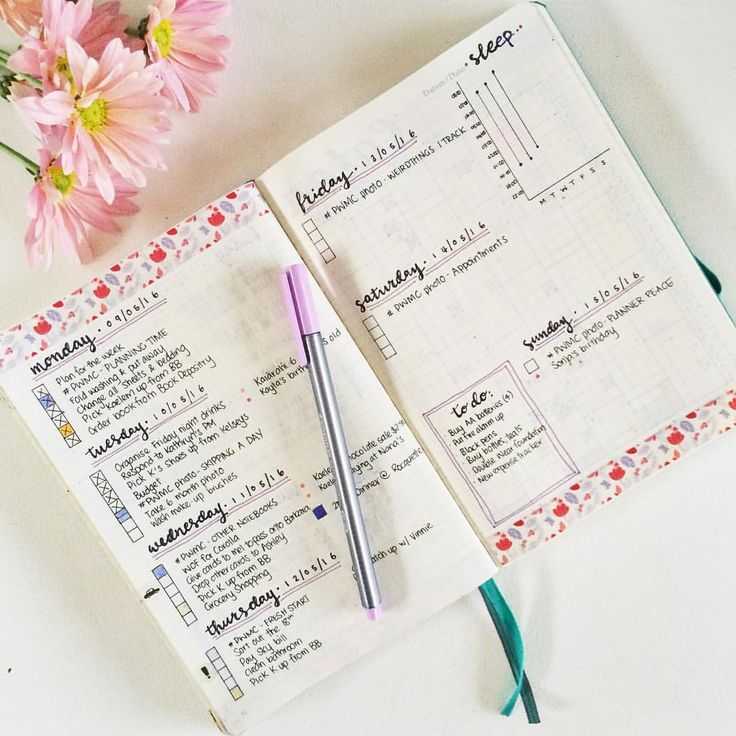 monday. 09/05/16
Plan for the week
# PWMC - PLANNING-TIME
Fold washing & put away
Change all sheets & bedding
Pick Kaelem up from BB
Order book from Book Depositry
old
Kayla's birth
tuesday. 10/05/16
Organise Friday night drinks
Respond to Kathryn's PM
Pick K's shoes up from Kelseys
Budget
# PWMC photo - SHOPPING A DAY
Take 6 month photo
Wash make-up brushes
chocolate sale
at Nana's
wednesday. 11/05/16
# PWMC - OTHER NOTEBOOKS
WOF for Corolla
Give cards to Mel to pass onto
Drop other cards to Ashley
Pick K up from BB
Grocery Shopping
Dinner @
thursday. 12/05/16
# PWMC - FRESH START
Sort out the 18th
Pay sky bill
Clean bathroom
Pick K up from BB
catch up w/ Vinnie
friday. 13/05/16
# PWMC photo - WEIRD THINGS I TRACK
Datum / Date:
. sleep .
M T W T F S S
saturday. 14/05/16
# PWMC photo - Appointments
sunday. 15/05/16
# PWMC photo - PLANNER PEACE
Sonja's birthday
to do:
Buy AA batteries (4)
Put fire alarm up
Black pens
Buy bottles, teats
Update Near Foundation
New expense tracker